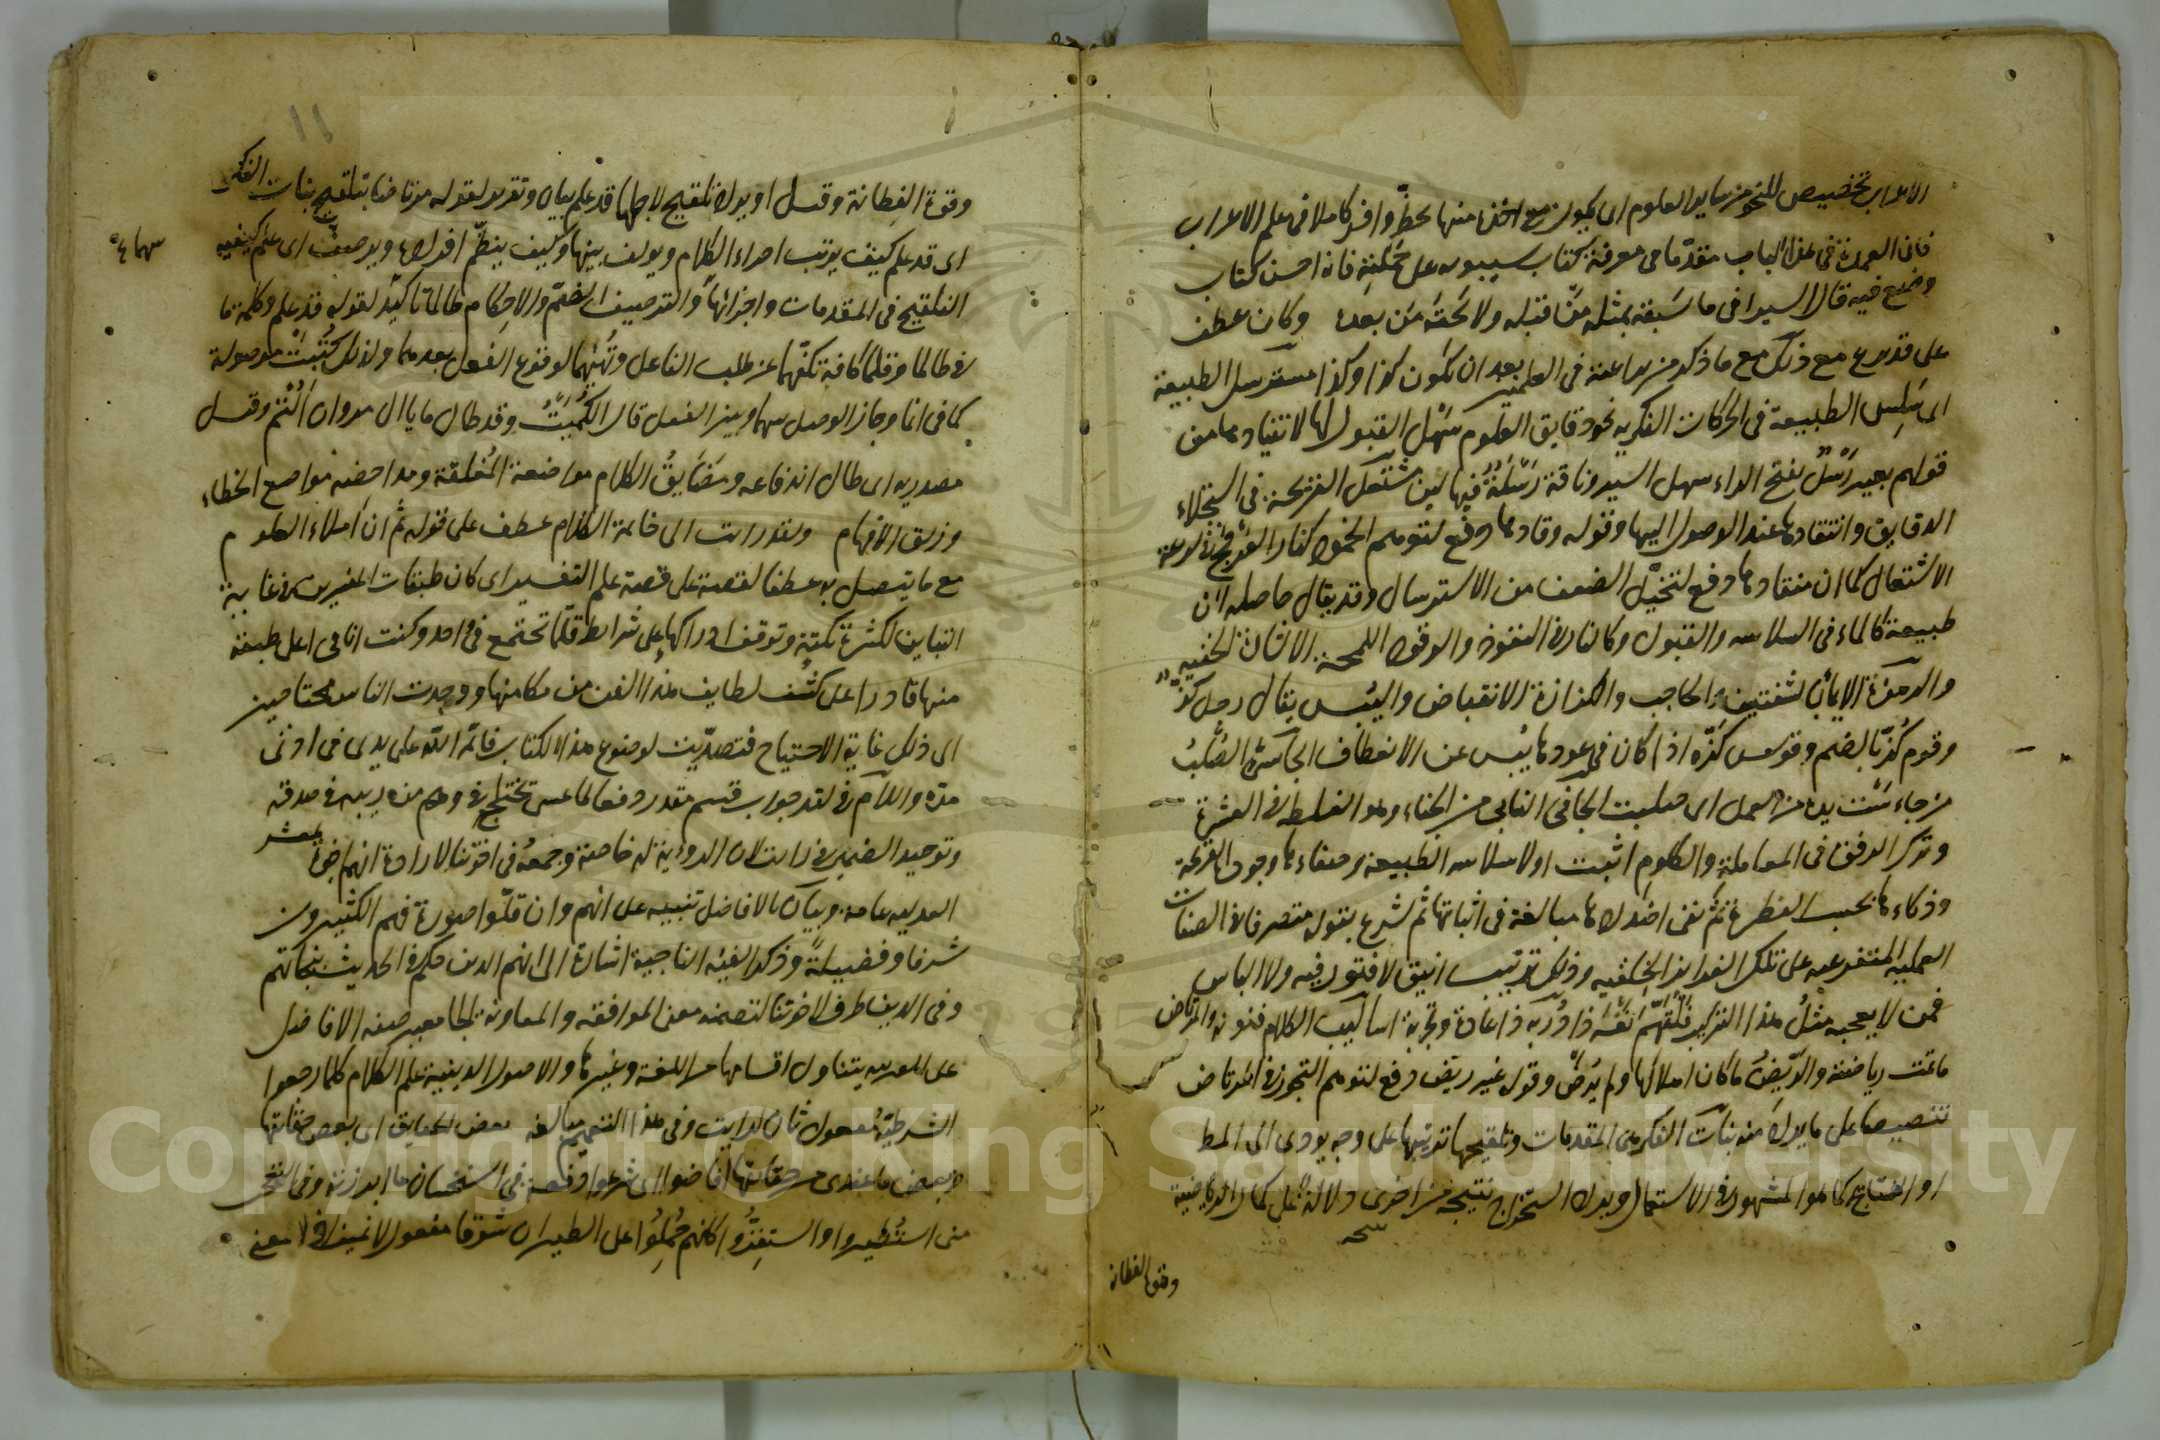 الاعراب تخصيص للنحو من ساير العلوم اى يكون مع اخذه منها بحظ وافر كاملا فى علم الاعراب
فان العمدة فى هذا الباب مقدما فى معرفة كتاب سيبويه على حملته فانه احسن كتاب
وضع فيه قال السيرافى ما سبقه بمثله من قبله ولا لحقه من بعده وكان عطف
على قد برع مع ذلك مع ما ذكر من براعته فى العلمين بعد ان تكون كذا وكذا مسترسل الطبيعة
اى سلس الطبيعة فى الحركات الفكرية نحو دقايق العلوم سهل القبول لها لا تنقاد بها من
قولهم بعير رسل بفتح الراء سهل السير وناقة رسلة فيها لين مشتعل القريحة فى استجلاء
الدقايق وانتقادها عند الوصول اليها وقوله وقادها دفع لتوهم الخمود كنار العرفج فى سرعة
الاشتعال كما ان منقادها دفع لتخيل الضعف من الاسترسال وقد يقال حاصله ان
طبيعة كالماء فى السلاسة والقبول وكالنار فى النفوذ والوقود اللمحة الاشارة الخفية
والرمزة الايماء بالشفتين والحاجب والكزازة الانقباض واليبس يقال رجل كز
وقوم كز بالضم وقوس كزة اذا كان فى عودها يبس عن الانعطاف الجاسى الصلب
من جاءت يده من العمل اى صلبت الجافى النابى من الجفاء وهو الغلظ فى العشرة
وترك الرفق فى المعاملة والكلام اثبت اولا سلاسة الطبيعة وصفاءها وجودة القريحة
وذكاءها بحسب الفطرة ثم نفى اضدادها مبالغة فى اثباتها ثم شرع بقوله متصرفا فى الصفات
العملية المتفرعة على تلك الغرايز الخلقية وذلك ترتيب انيق لا فتور فيه ولا الباس
فمن لا يعجبه مثل هذا التركيب فليتهم نفسه ذا دربة ذا عادة وتجربة اساليب الكلام فنونه والمرتاض
ما تمت رياضته والريض ما كان ابتداؤها ولم يرض وقوله غير ريض دفع لتوهم التجوز فى المرتاض
تنصيصا على ما يراد منه بنات الفكر هى المقدمات وتلقيحها ترتيبها على وجه يودى الى المط
او النتايج كما هو المشهور فى الاستعمال ويراد استخراج نتيجة من اخرى دلالة على كمال الرياضية
وقوة الفطانة
وقوة الفطانة وقيل او يراد تلقيح لاجلها قد علم بيان وتقرير لقوله مرتاضا بتلقيح بنات الفكر
اى قد علم كيف يرتب اجزاء الكلام ويولف بينها وكيف ينظم افرادها ويرصف اى علم كيفية
التلقيح فى المقدمات واجزائها والترصيف الضم والاحكام طالما تاكيد لقوله قد علم وكلمة ما
فى طالما وقلما كافة تكفهما عن طلب الفاعل وتهيئهما لوقوع الفعل بعدهما ولذلك كتبت موصولة
كما فى انما وجاز الوصل بينها وبين الفعل قال الكميت وقد طال ما يا ال مروان التم وقيل
مصدرية اى طال اندفاعه ومضايق الكلام مواضعة المغلقة ومداحضه مواضع الخطاء
وزلق الافهام ولقد رايت الى خاتمة الكلام عطف على قوله ثم ان املاء العلوم
مع ما يتصل به عطفا لقصة على قصة علم التفسير اى كان طبقات المفسرين فى غاية
التباين لكثرة نكته وتوقف ادراكها على شرايط قلما تجتمع فى واحد وكنت انا فى اعلى طبقة
منها قادرا على كشف لطايف هذا الفن من مكامنها ووجدت الناس محتاجين
الى ذلك غاية الاحتياج فتصديت لوضع هذا الكتاب فاتمه الله على يدى فى ادنى
مدة واللام فى لقد جواب قسم مقدر دفعا لما عسى تختلج فى وهم من ريبة فى صدقه
وتوحيد الضمير فى رايت لان الرؤية له خاصة وجمعه فى اخوتنا لارادة انهم اخوة معشر
العدلية عامة وبيان بالافاضل تنبيه على انهم وان قلوا صورة فهم الكثيرون
شرفا وفضيلة وذكر الفئة الناجية اشارة الى انهم الذين حكم فى الحديث بنجاتهم
وفى الدين ظرف لاخوتنا لتضمنه معنى الموافقة والمعاونة الجامعين صفة الافاضل
علم العربية يتناول اقسامها من اللغة وغيرها والاصول الدينية علم الكلام كلما رجعوا
الشرطية مفعول ثان لرايت وفى هذا التعميم مبالغة بعض الحقايق اى بعض حقايقها
وبعض ما عندى من حقايقها افاضوا اى شرعوا دفعة فى استحسان ما ابرزته وفى التعجب
منى استطيروا واستفزوا كانهم حملوا على الطيران شوقا مفعول لا تمييز فى معنى